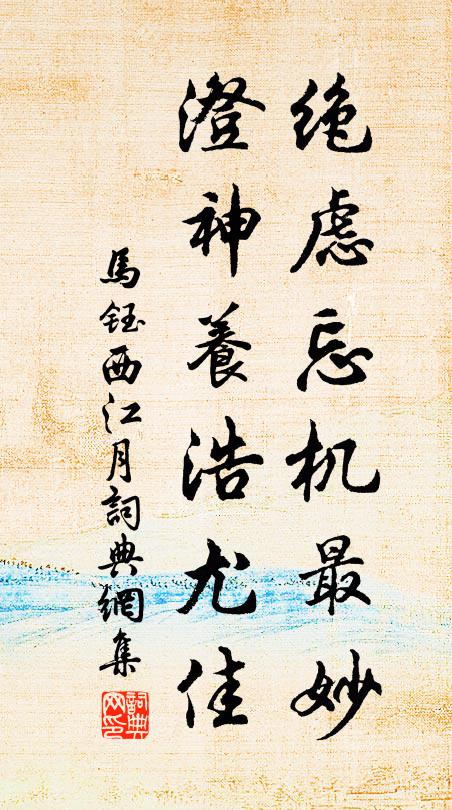 绝虑忘机最妙
澄神養浩尤佳
馬鈺西江月詞典網集
詞典网印